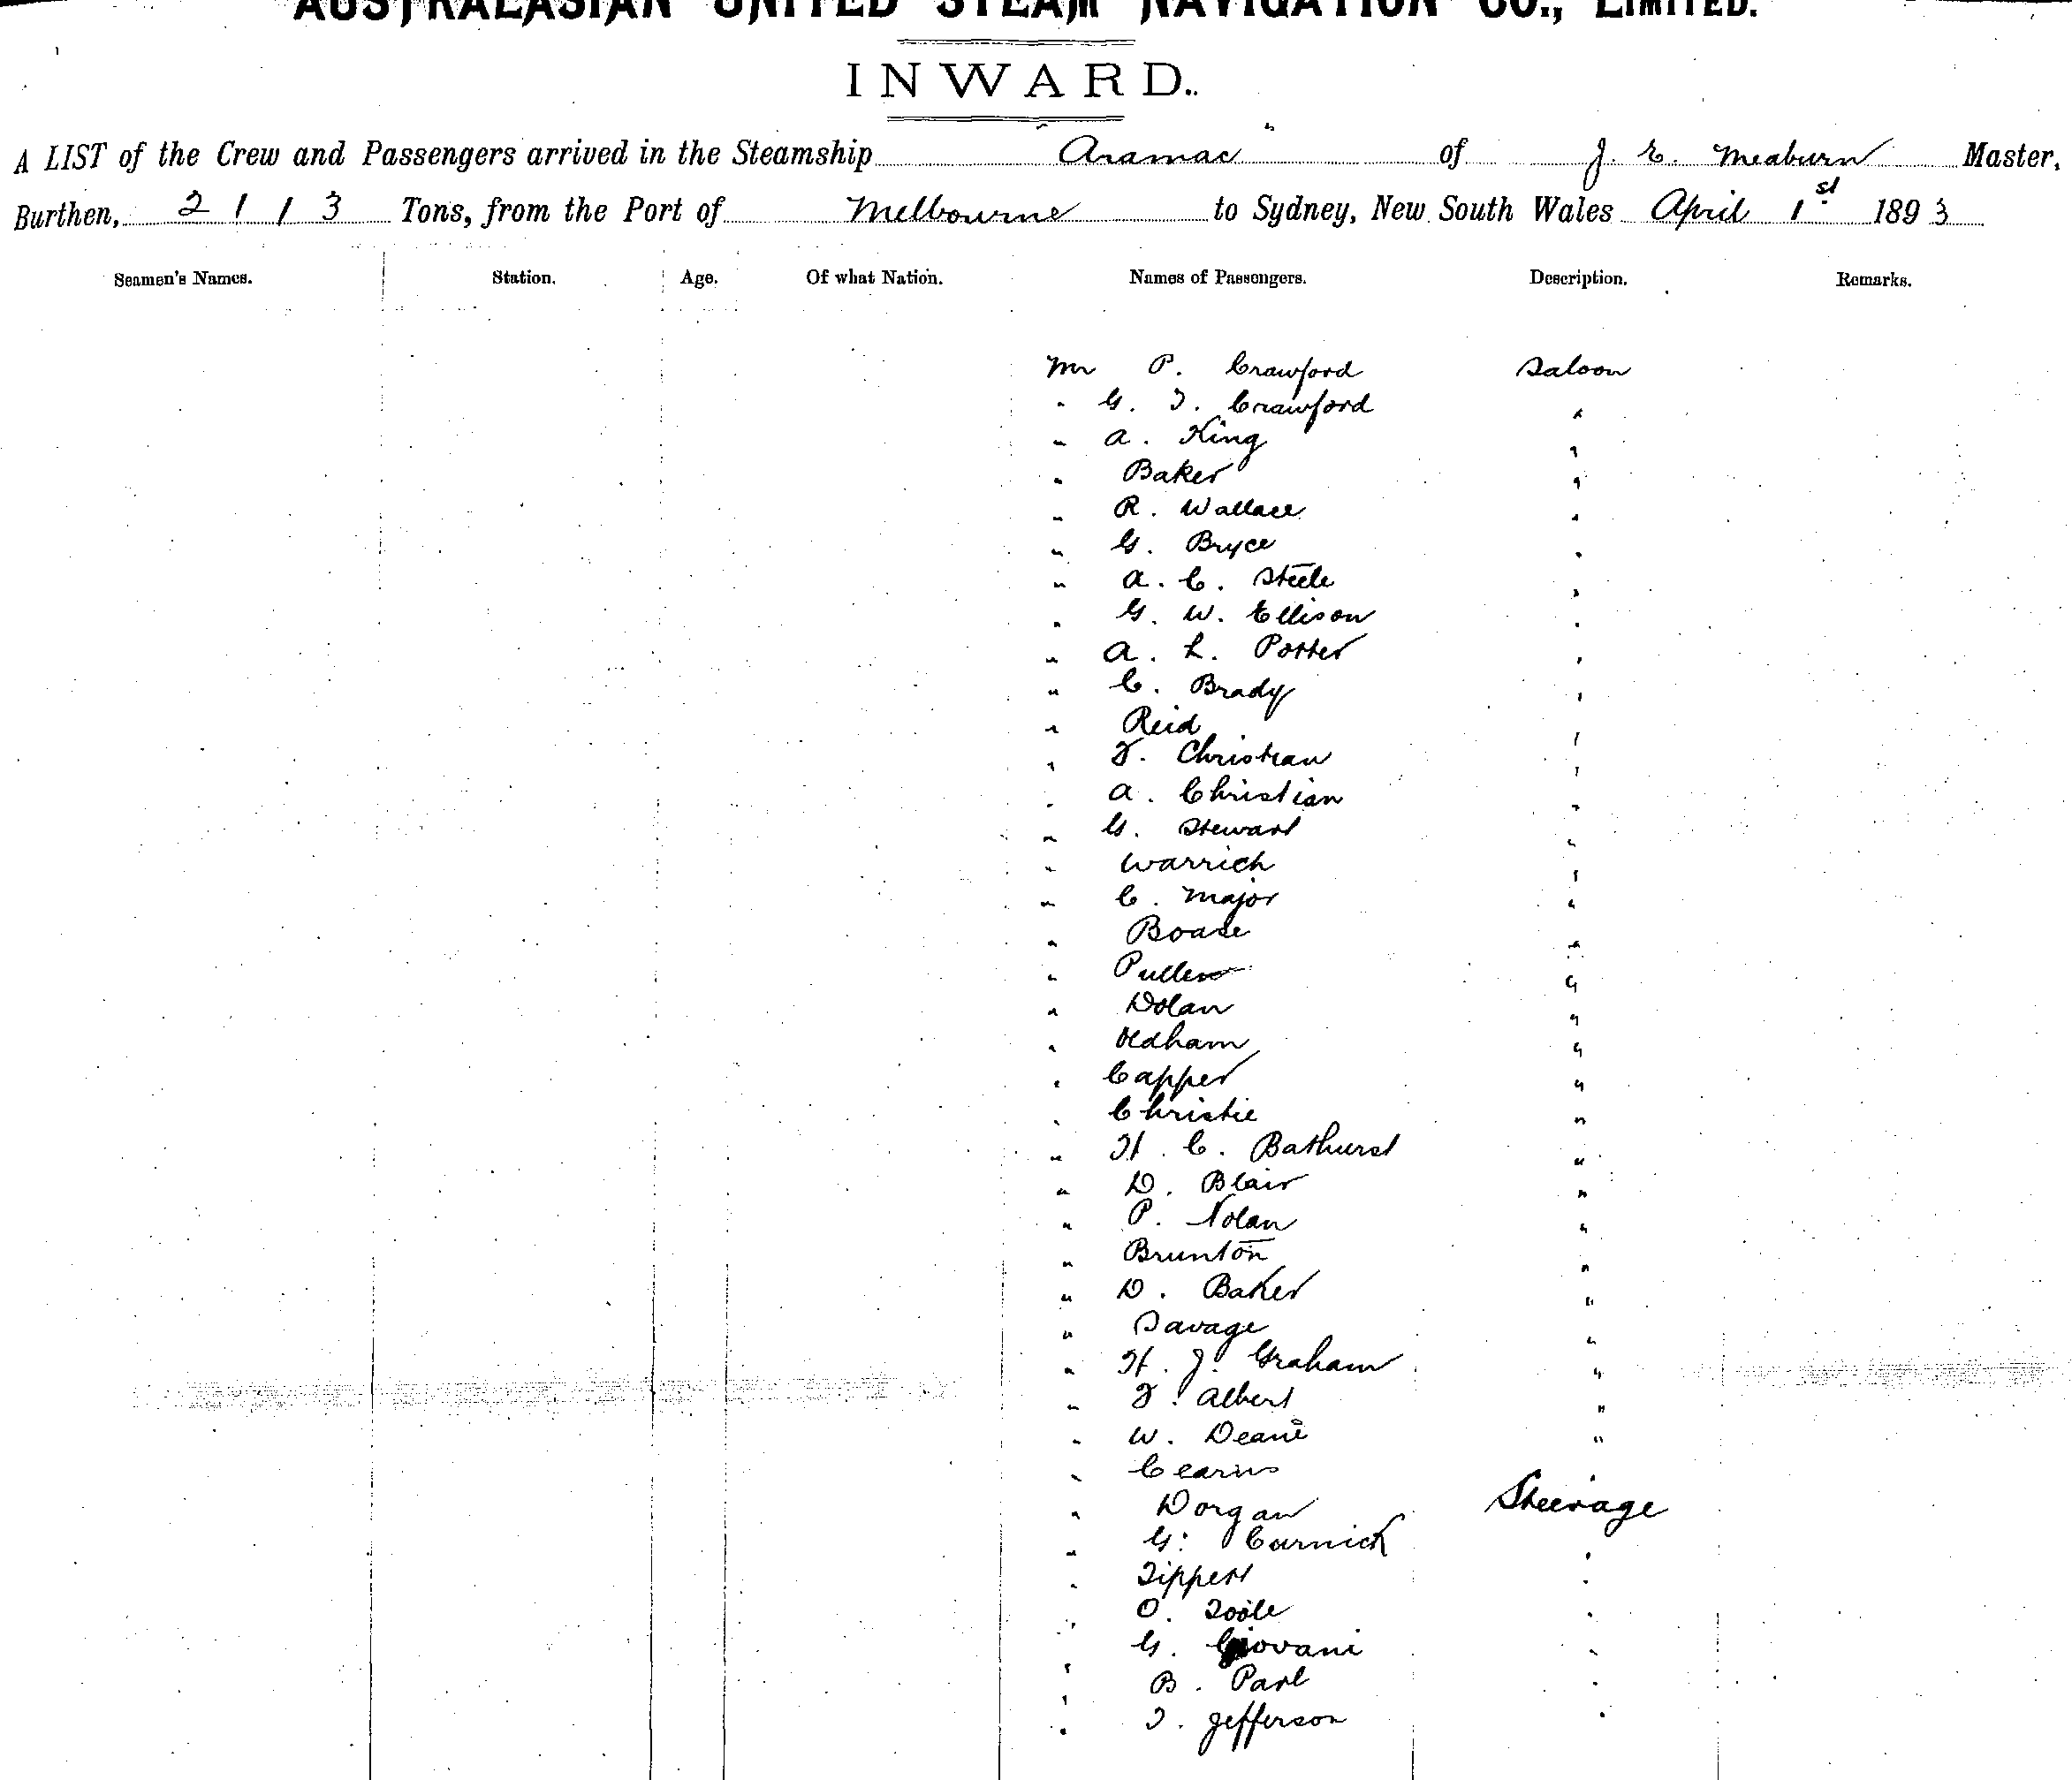 AUSTRALASIAN UNITED STEAM NAVIGATION CO., LIMITED.
INWARD.
A LIST of the Crew and Passengers arrived in the Steamship Aramac of J. E. Meaburn Master,
Burthen, 2113 Tons, from the Port of Melbourne to Sydney, New South Wales April 1st 1893
Seamen's Names. Station. Age. Of what Nation. Names of Passengers. Description. Remarks.
Mr P. Crawford Saloon
" G. T. Crawford "
" A. King "
" Baker "
" R. Wallace "
" G. Bryce "
" A. C. Steele "
" G. W. Ellison "
" A. L. Potter "
" C. Brady "
" Reid "
" F. Christian "
" A. Christian "
" G. Stewart "
" Warrich "
" C. Major "
" Boase "
" Pullen "
" Dolan "
" Oldham "
" Capper "
" Christie "
" H. C. Bathurst "
" D. Blair "
" P. Nolan "
" Brunton "
" D. Baker "
" Savage "
" H. J. Graham "
" F. Albert "
" W. Deane "
" Cearns "
" Dorgan Steerage
" G. Carnick "
" Tippert "
" O. Toole "
" G. Giovani "
" B. Parl "
" T. Jefferson "